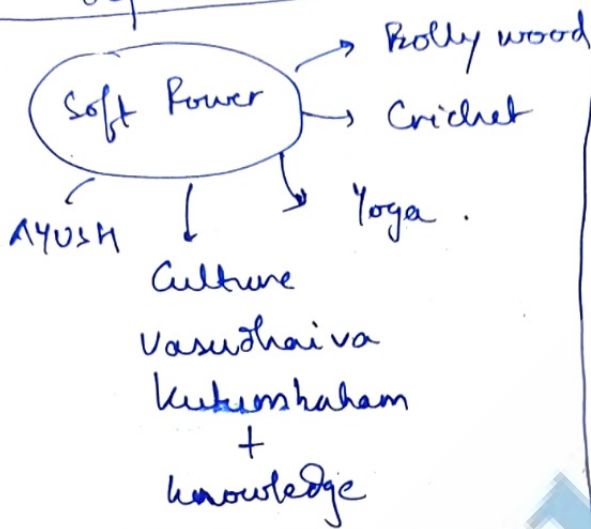 Soft Power
Bollywood
Cricket
Yoga.
AYUSH
Culture
Vasudhaiva
Kutumbakam
+
knowledge